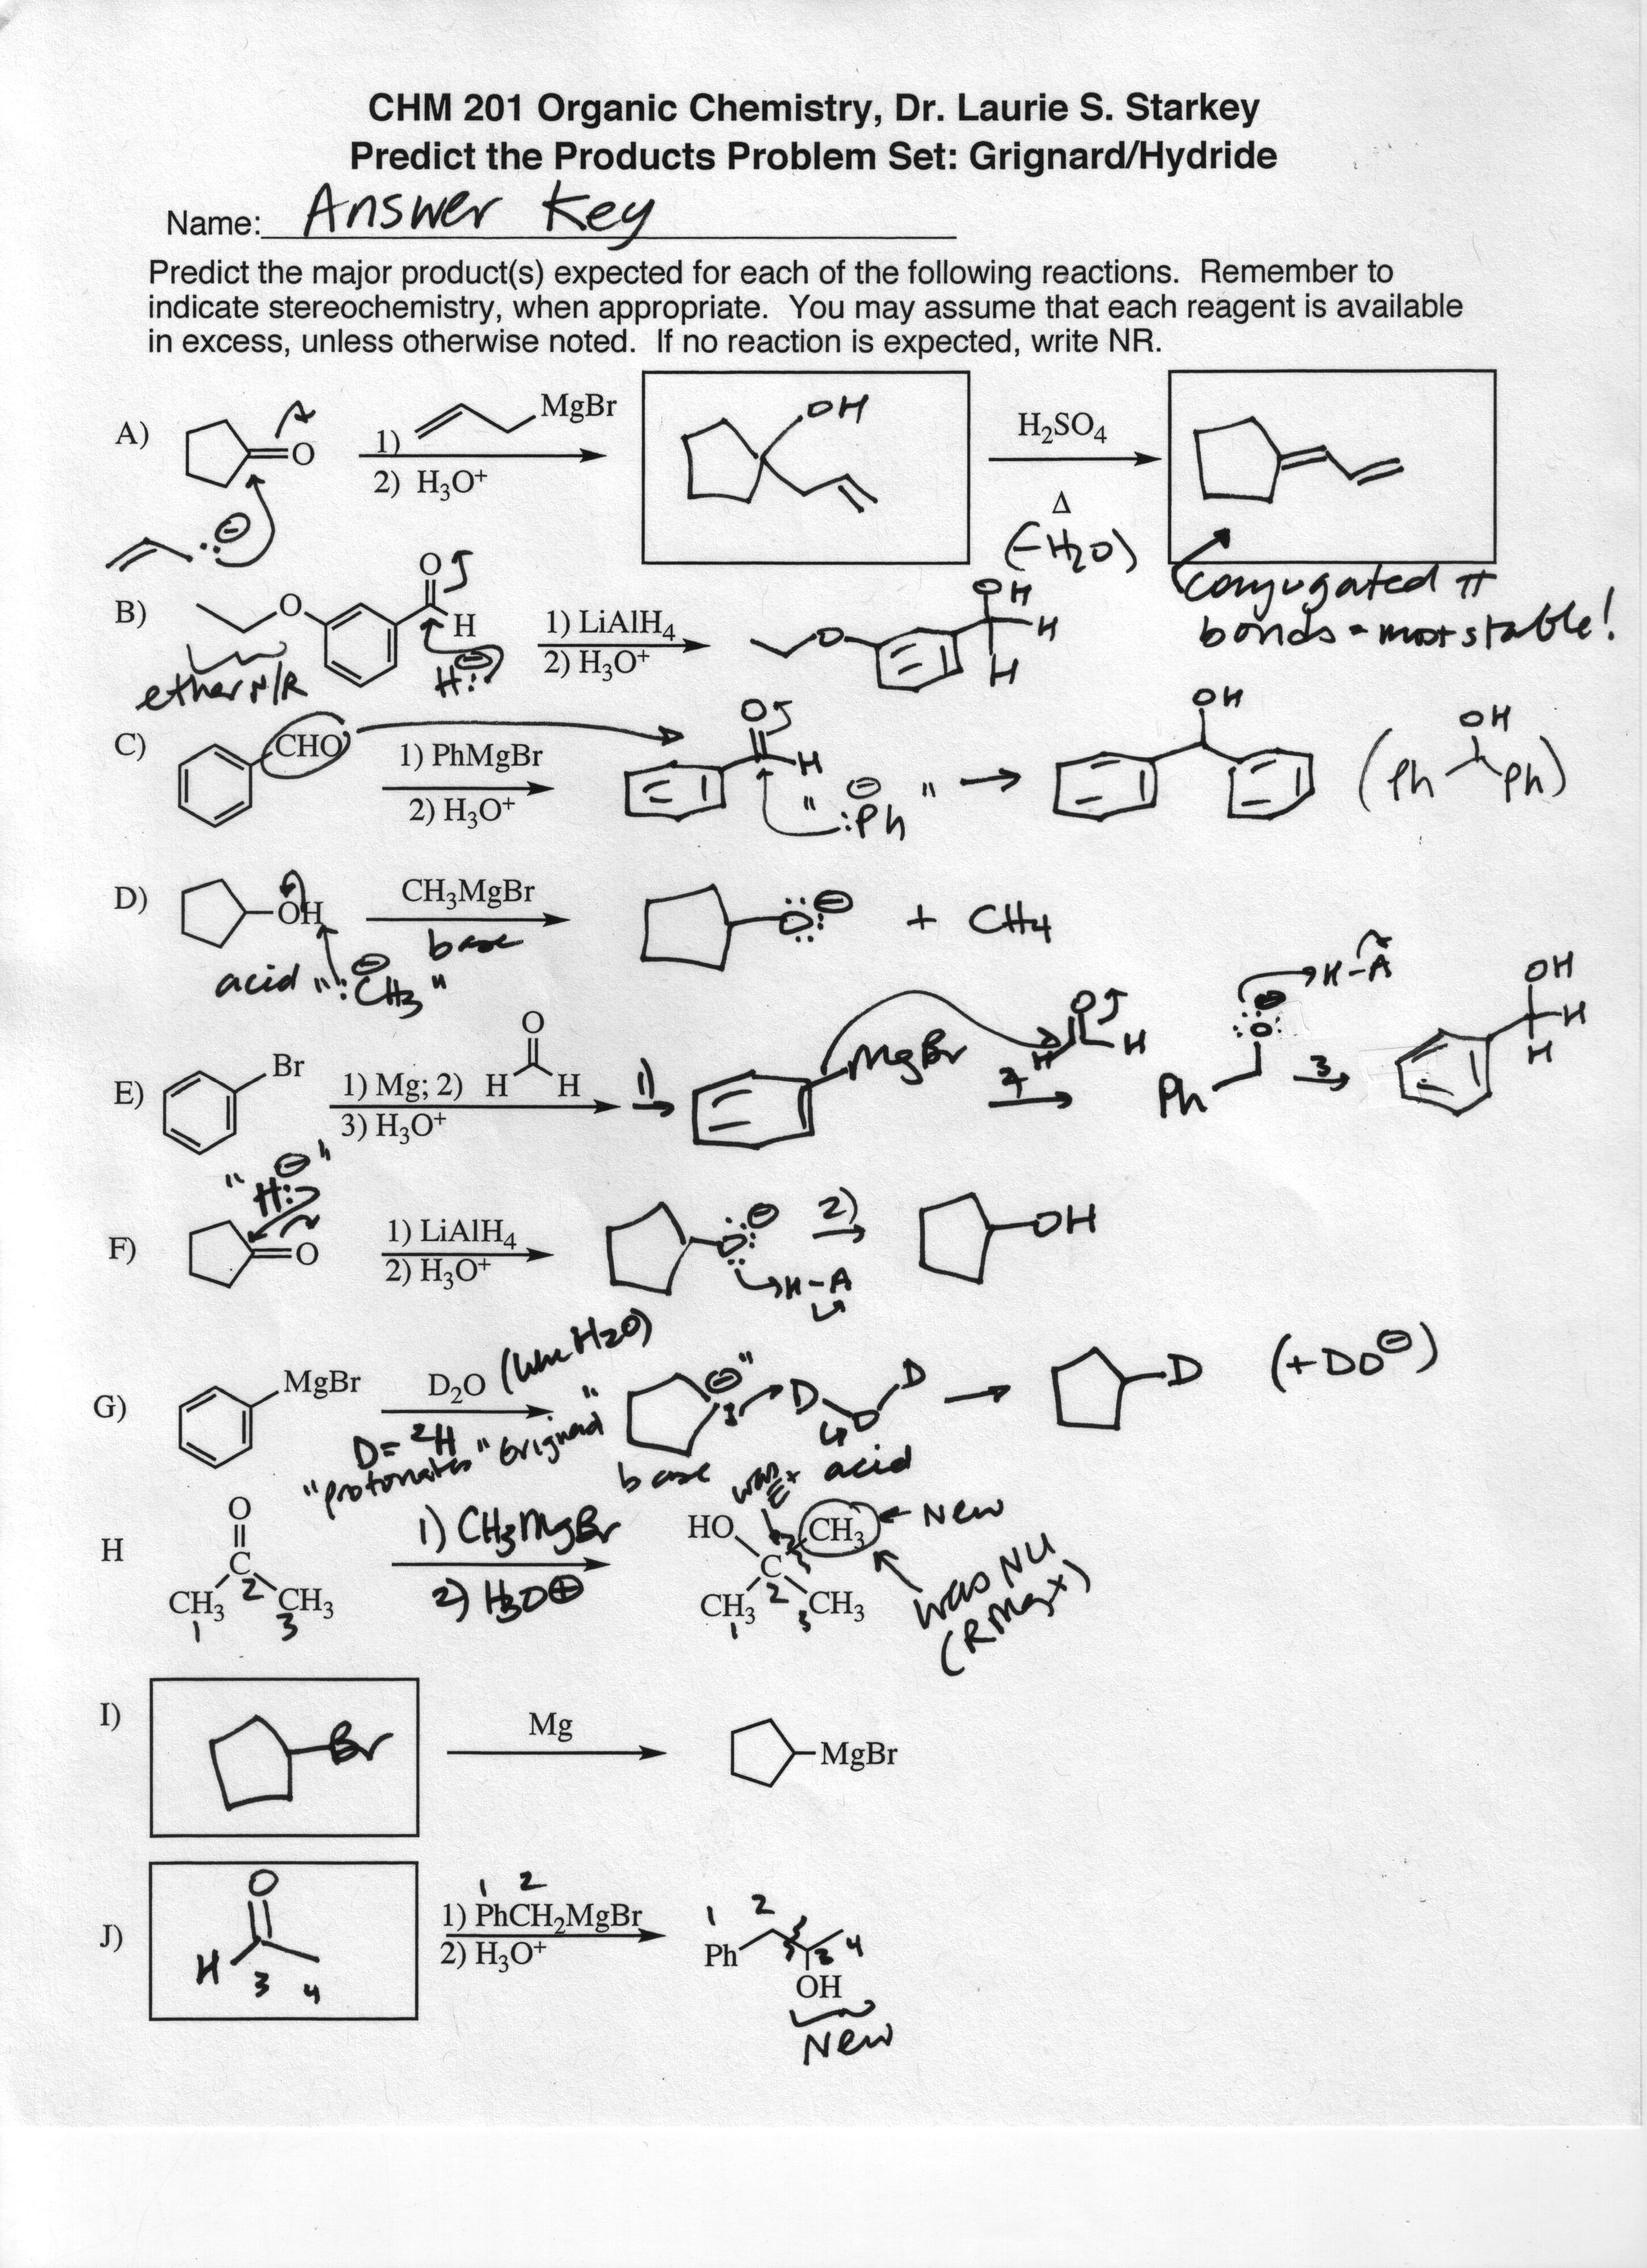 CHM 201 Organic Chemistry, Dr. Laurie S. Starkey
Predict the Products Problem Set: Grignard/Hydride
Name: Answer Key
Predict the major product(s) expected for each of the following reactions. Remember to
indicate stereochemistry, when appropriate. You may assume that each reagent is available
in excess, unless otherwise noted. If no reaction is expected, write NR.
A)
O
1)
MgBr
2) H3O+
OH
H2SO4
Δ
(-H2O)
⊖
conjugated π
bonds = most stable!
B)
O
O
H
ether N/R
H:⊖
1) LiAlH4
2) H3O+
O
OH
H
H
C)
CHO
1) PhMgBr
2) H3O+
O
H
" ⊖ "
:Ph
OH
(Ph OH Ph)
D)
OH
CH3MgBr
base
acid ":CH3⊖"
O⊖ + CH4
E)
Br
1) Mg; 2) H O H
3) H3O+
1)
MgBr
2
O
H H
Ph
O⊖
H-A
3
OH
H
H
F)
"H:⊖"
O
1) LiAlH4
2) H3O+
O⊖
H-A
2)
OH
G)
MgBr
D2O (like H2O)
D= 2H
"protonates" Grignard
"⊖"
base
D O D
acid
D (+DO⊖)
H
O
C
2
CH3 CH3
1 3
1) CH3MgBr
2) H3O⊕
was E+
HO CH3 ← New
C
2
CH3 CH3
1 3
was Nu
(RMgX)
I)
Br
Mg
MgBr
J)
O
H 3 4
1 2
1) PhCH2MgBr
2) H3O+
1 2
Ph 3 4
OH
New